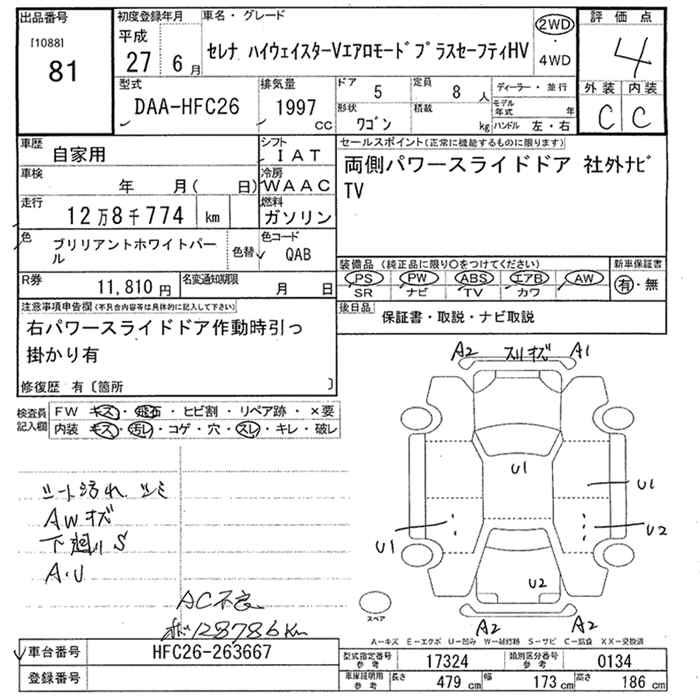 出品番号 [1088] 81
初度登録年月 平成 27 6月
車名・グレード セレナ ハイウェイスターVエアロモード プラスセーフティHV
2WD ・ 4WD
評価点 4
外装 C 内装 C
型式 DAA-HFC26
排気量 1997 CC
ドア 5 定員 8 人
形状 ワゴン 積載 kg
ディーラー・並行
モデル年式 年
ハンドル 左・右
車歴 自家用
シフト IAT
車検 年 月( 日)
冷房 WAAC
走行 12万8千774 km
燃料 ガソリン
色 ブリリアントホワイトパール 色替
色コード QAB
R券 11,810円
名変通知期限 月 日
セールスポイント(正常に機能するものに限ります)
両側パワースライドドア 社外ナビ
TV
装備品(純正品に限り○をつけてください)
PS PW ABS エアB AW
SR ナビ TV カワ
新車保証書 有・無
後日品 保証書・取説・ナビ取説
注意事項申告欄(不具合内容等は具体的に記入して下さい)
右パワースライドドア作動時引っ
掛かり有
修復歴 有〔箇所 〕
検査員記入欄
FW キズ・飛石・ヒビ割・リペア跡・×要
内装 キズ・汚レ・コゲ・穴・スレ・キレ・破レ
シート汚れ シミ
AWキズ
下廻りS
A・U
AC不良
128786km
A2 スリキズ A1
U1
U1
U1
U2
U2
A2 A2
スペア
A－キズ E－エクボ U－凹み W－補修跡 S－サビ C－腐食 XX－交換済
車台番号 HFC26-263667
登録番号
型式指定番号 参考 17324
類別区分番号 参考 0134
車庫証明用 参考 長さ 479 cm 幅 173 cm 高さ 186 cm